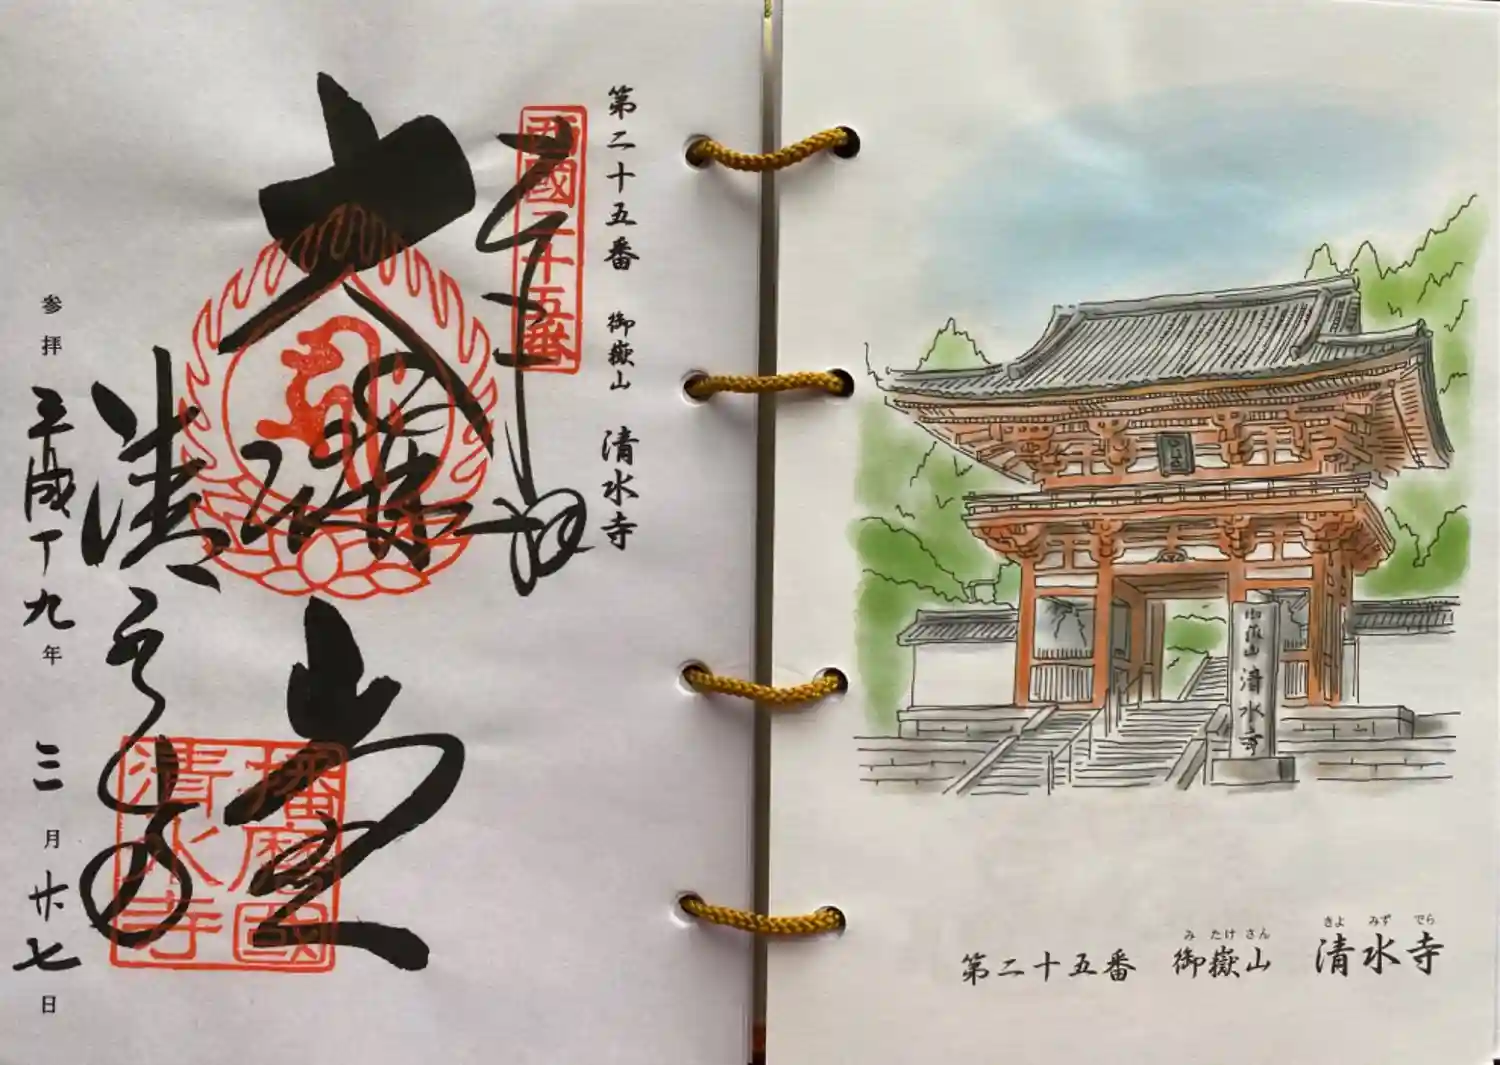 第二十五番 御嶽山 清水寺
西國二十五番
奉拝
大講堂
播磨國
清水寺
清水寺
参拝 平成丁九年 三月廿七日
御嶽山 清水寺
み たけ さん きよ みず でら
第二十五番 御嶽山 清水寺